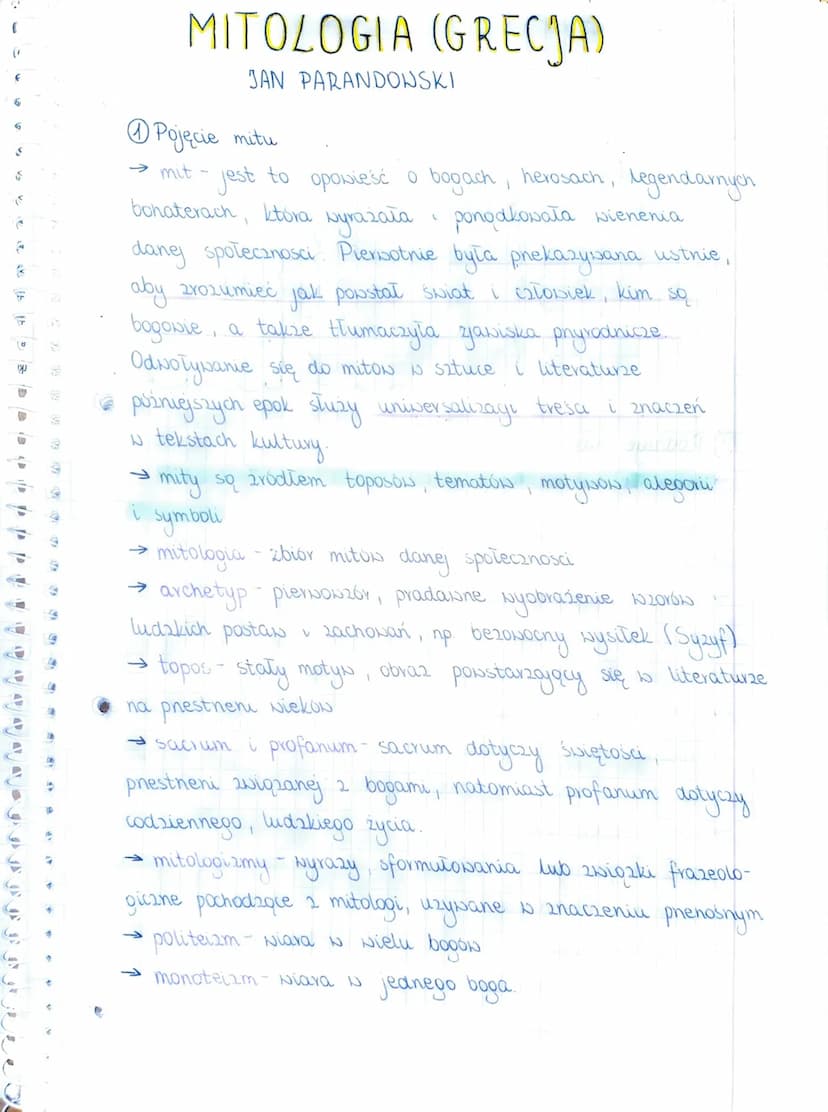 MITOLOGIA (GRECJA)
JAN PARANDOWSKI
① Pojęcie mitu
→ mit - jest to opowieść o bogach, herosach, legendarnych
bohaterach, która wyrażała i porządkowała wierzenia
danej społeczności. Pierwotnie była przekazywana ustnie,
aby zrozumieć jak powstał świat i człowiek, kim są
bogowie, a także tłumaczyła zjawiska przyrodnicze.
Odwoływanie się do mitów w sztuce i literaturze
późniejszych epok służy uniwersalizacji treści i znaczeń
w tekstach kultury.
→ mity są źródłem toposów, tematów, motywów, alegorii
i symboli
→ mitologia - zbiór mitów danej społeczności
→ archetyp - pierwowzór, pradawne wyobrażenie wzorów
ludzkich postaw i zachowań, np bezowocny wysiłek (Syzyf)
→ topos - stały motyw, obraz powstarzający się w literaturze
na przestrzeni wieków
→ sacrum i profanum - sacrum dotyczy świętości,
przestrzeni związanej z bogami, natomiast profanum dotyczy
codziennego, ludzkiego życia.
→ mitologizmy - wyrazy, sformułowania lub związki frazeolo-
giczne pochodzące z mitologi, używane w znaczeniu przenośnym
→ politeizm - wiara w wielu bogów
→ monoteizm - wiara w jednego boga.